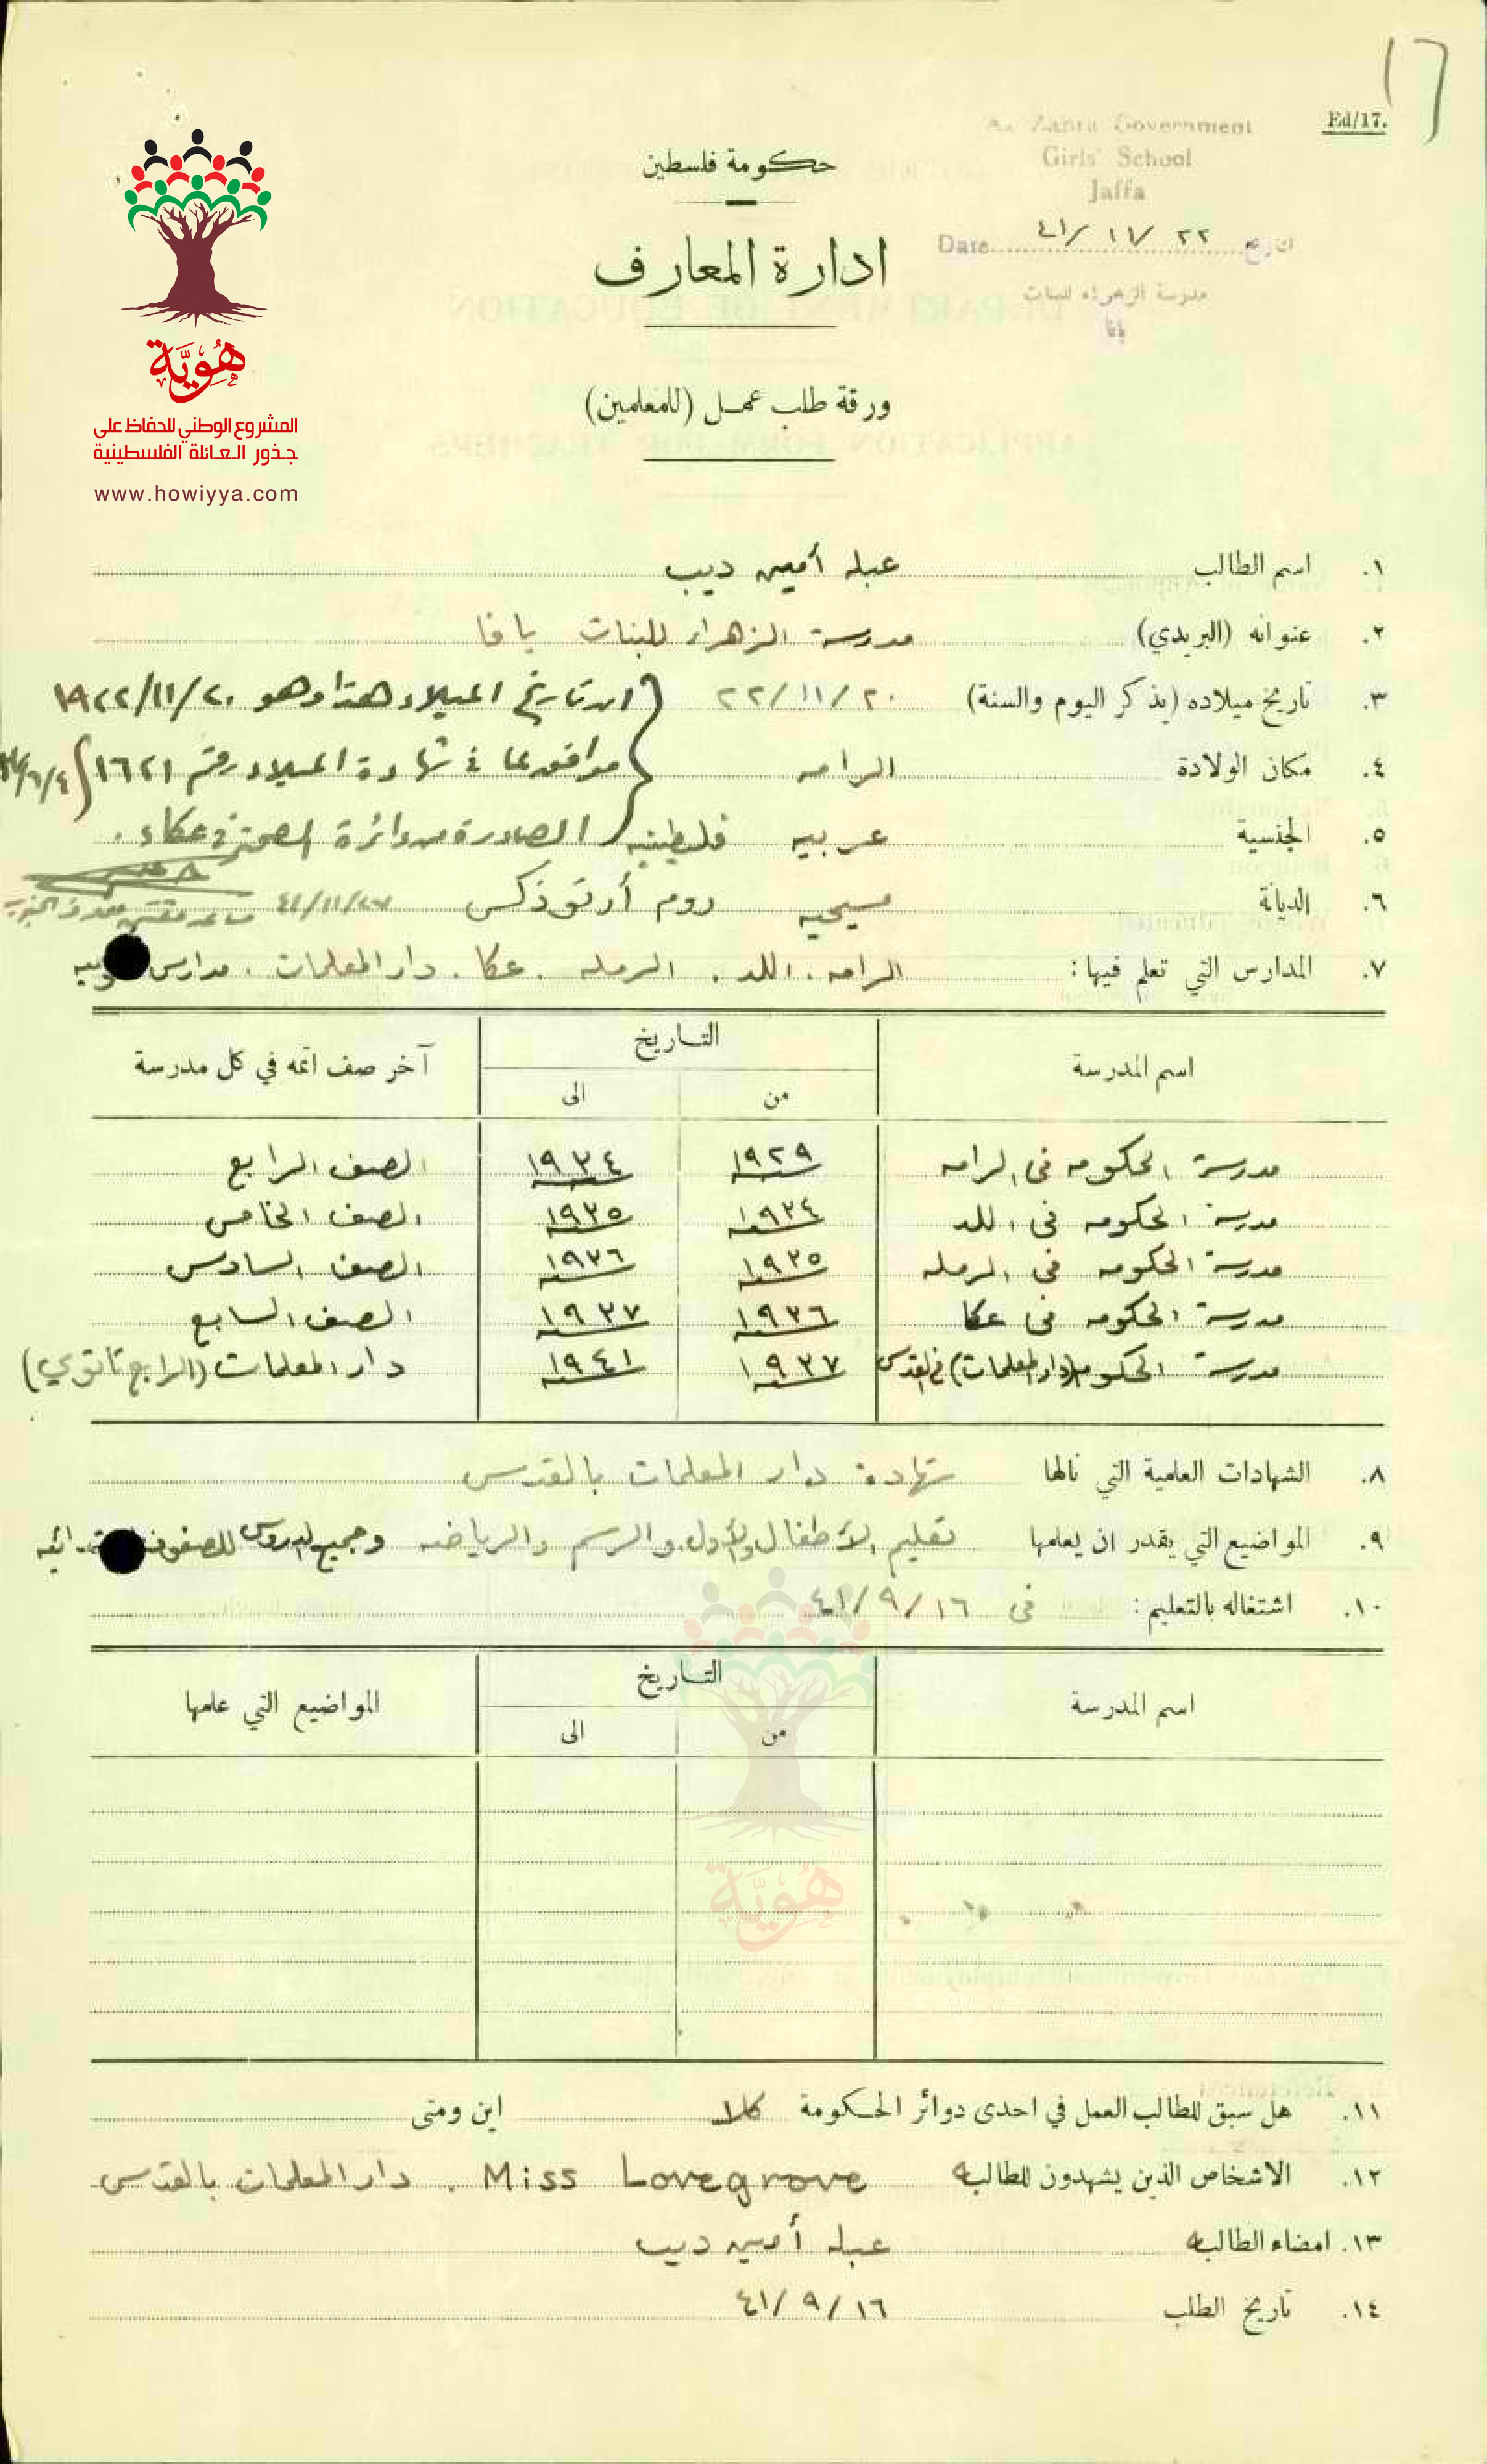 Ed/17.
Az Zahra Government
Girls' School
Jaffa
Date ٤١/ ١١/ ٢٢ التاريخ
مدرسة الزهراء للبنات
يافا
حكومة فلسطين
ادارة المعارف
ورقة طلب عمل (للمعلمين)
هُوِيَّة
المشروع الوطني للحفاظ على
جذور العائلة الفلسطينية
www.howiyya.com
١. اسم الطالب عبله أمين ديب
٢. عنوانه (البريدي) مدرسة الزهراء للبنات يافا
٣. تاريخ ميلاده (يذكر اليوم والسنة) ٢٠/ ١١/ ٢٢ ان تاريخ الميلاد هذا وهو ٢٠/١١/١٩٢٢
٤. مكان الولادة الرامه موافق لما في شهادة الميلاد رقم ١٦٢١
٥. الجنسية عربيه فلسطينيه الصادرة من دائرة الصحة في عكاء.
٦. الديانة مسيحيه روم أرتوذكس
٧. المدارس التي تعلم فيها: الرامه. اللد. الرمله. عكا. دار المعلمات. مدارس
اسم المدرسة التاريخ آخر صف اتمه في كل مدرسة
من الى
مدرسة الحكومه في الرامه ١٩٢٩ ١٩٣٤ الصف الرابع
مدرسة الحكومه في اللد ١٩٣٤ ١٩٣٥ الصف الخامس
مدرسة الحكومه في الرمله ١٩٣٥ ١٩٣٦ الصف السادس
مدرسة الحكومه في عكا ١٩٣٦ ١٩٣٧ الصف السابع
مدرسة الحكومه (دار المعلمات) في القدس ١٩٣٧ ١٩٤١ دار المعلمات (الرابع ثانوي)
٨. الشهادات العلمية التي نالها شهادة دار المعلمات بالقدس
٩. المواضيع التي يقدر ان يعلمها تعليم الأطفال والأول والرسم والرياضه وجميع الدروس للصفوف
١٠. اشتغاله بالتعليم: في ١٦/ ٩/ ٤١
اسم المدرسة التاريخ المواضيع التي علمها
من الى
هُوِيَّة
١١. هل سبق للطالب العمل في احدى دوائر الحكومة كلا اين ومتى
١٢. الاشخاص الذين يشهدون للطالبه Miss Lovegrove . دار المعلمات بالقدس
١٣. امضاء الطالبه عبله أمين ديب
١٤. تاريخ الطلب ١٦/ ٩/ ٤١